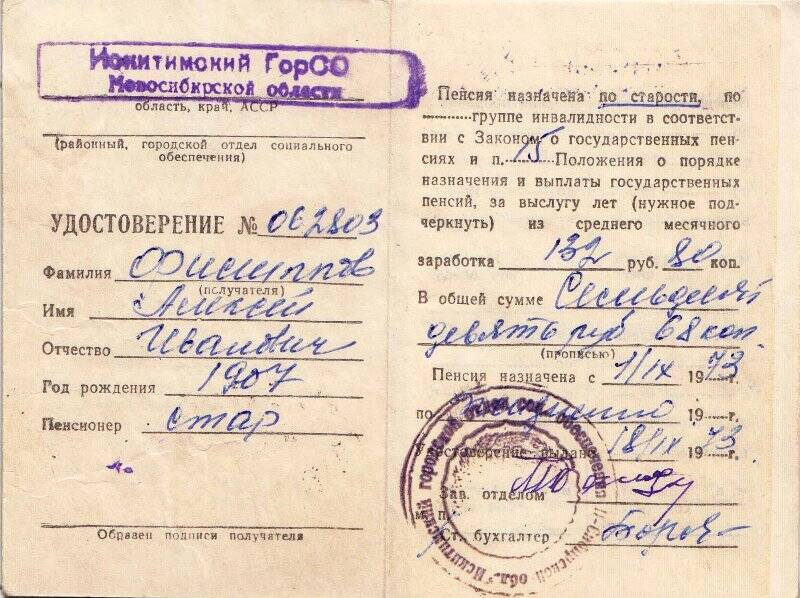 Искитимский ГорСО
Новосибирской области
область, край, АССР
(районный, городской отдел социального
обеспечения)
УДОСТОВЕРЕНИЕ № 062803
Фамилия Филиппов
(получателя)
Имя Алексей
Отчество Иванович
Год рождения 1907
Пенсионер стар
Образец подписи получателя
Пенсия назначена по старости, по
группе инвалидности в соответст-
вии с Законом о государственных пен-
сиях и п. 15 Положения о порядке
назначения и выплаты государственных
пенсий, за выслугу лет (нужное под-
черкнуть) из среднего месячного
заработка 132 руб. 80 коп.
В общей сумме Семьдесят
девять руб 68 коп
(прописью)
Пенсия назначена с 1/IX 1973 г.
по 19 г.
Удостоверение выдано 18/IX 1973 г.
Зав. отделом
м. п.
Ст. бухгалтер